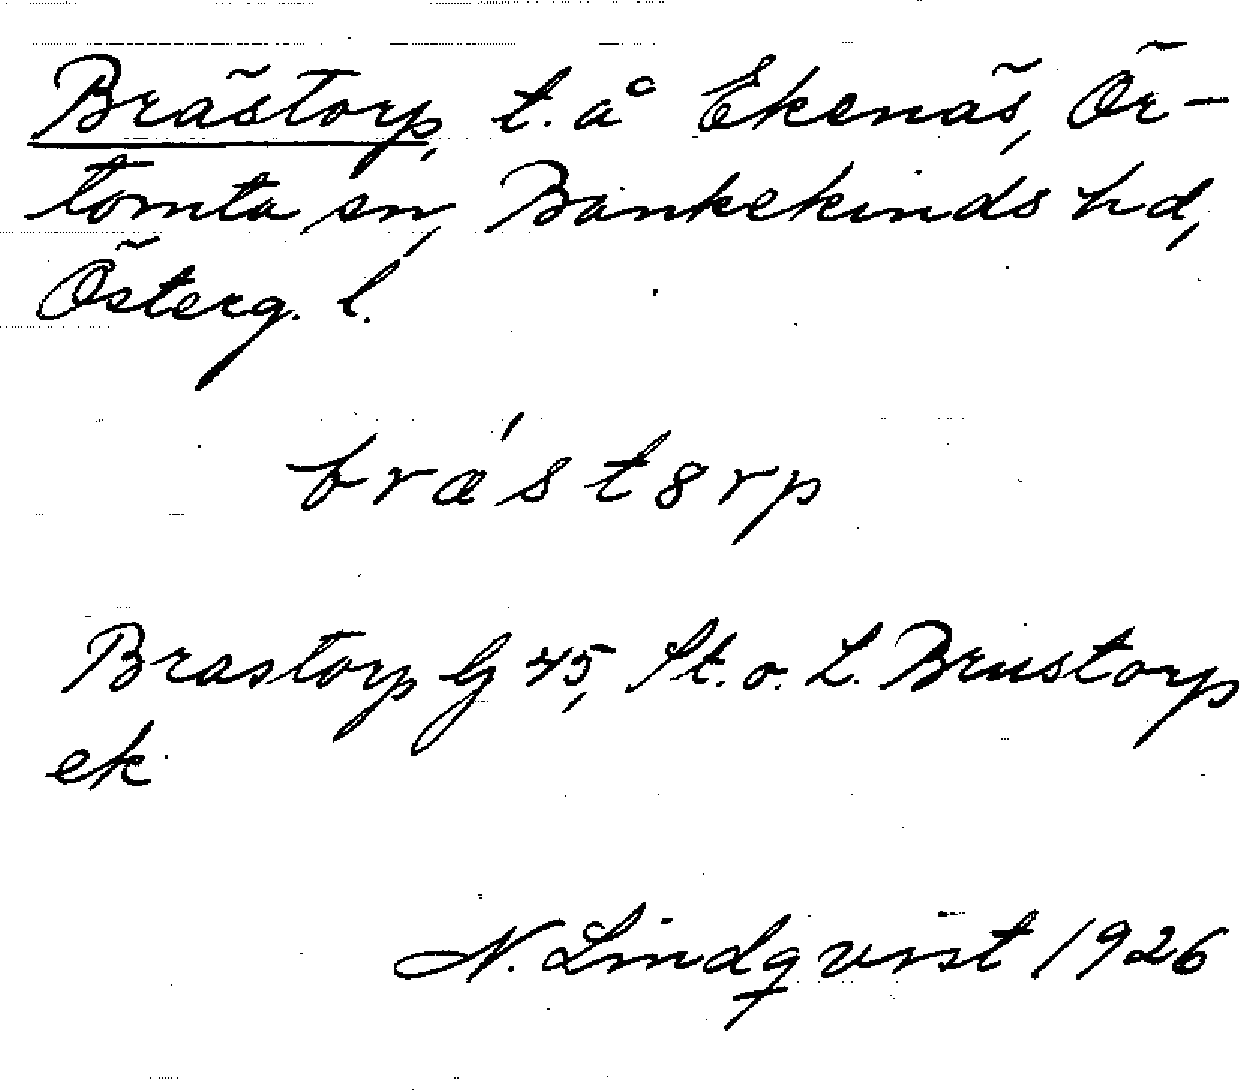 Brästorp, t. å Ekenäs, Ör-
tomta sn, Bankekinds hd,
Österg. l.
bræ´st8rp
Brastorp G 45, St. o. L. Brustorp
ek
N. Lindqvist 1926